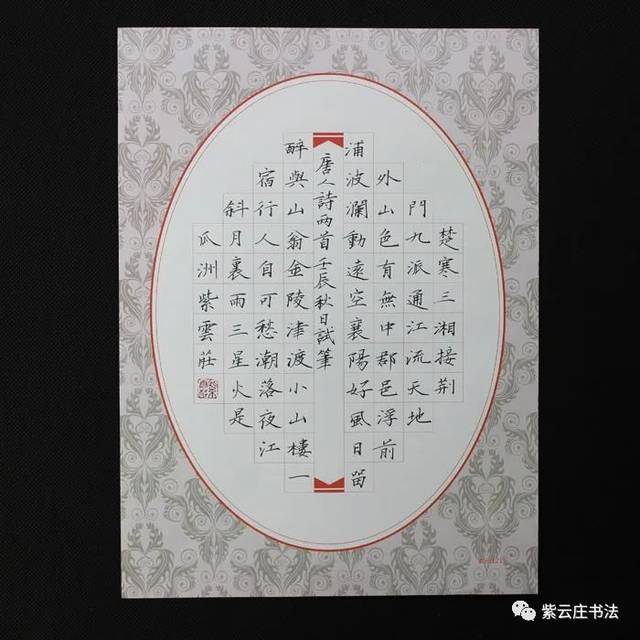 楚寒三湘接荆
門九派通江流天地
外山色有無中郡邑浮前
浦波瀾動遠空襄陽好風日留
唐人詩两首壬辰秋日試筆
醉與山翁金陵津渡小山樓一
宿行人自可愁潮落夜江
斜月裏兩三星火是
瓜洲紫雲莊
紫云庄书法